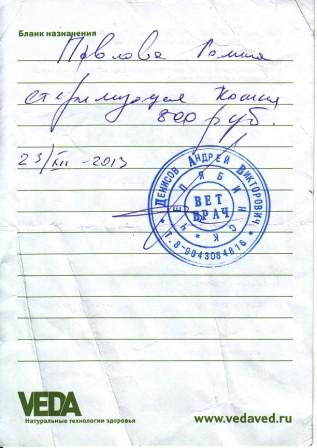 Бланк назначения
Павлова Галина
стерилизация кошки
800 руб.
23/XII-2013
ДЕНИСОВ АНДРЕЙ ВИКТОРОВИЧ
Т. 8-9043084816
ЧЕЛЯБИНСК
ВЕТ
ВРАЧ
VEDA
Натуральные технологии здоровья
www.vedaved.ru